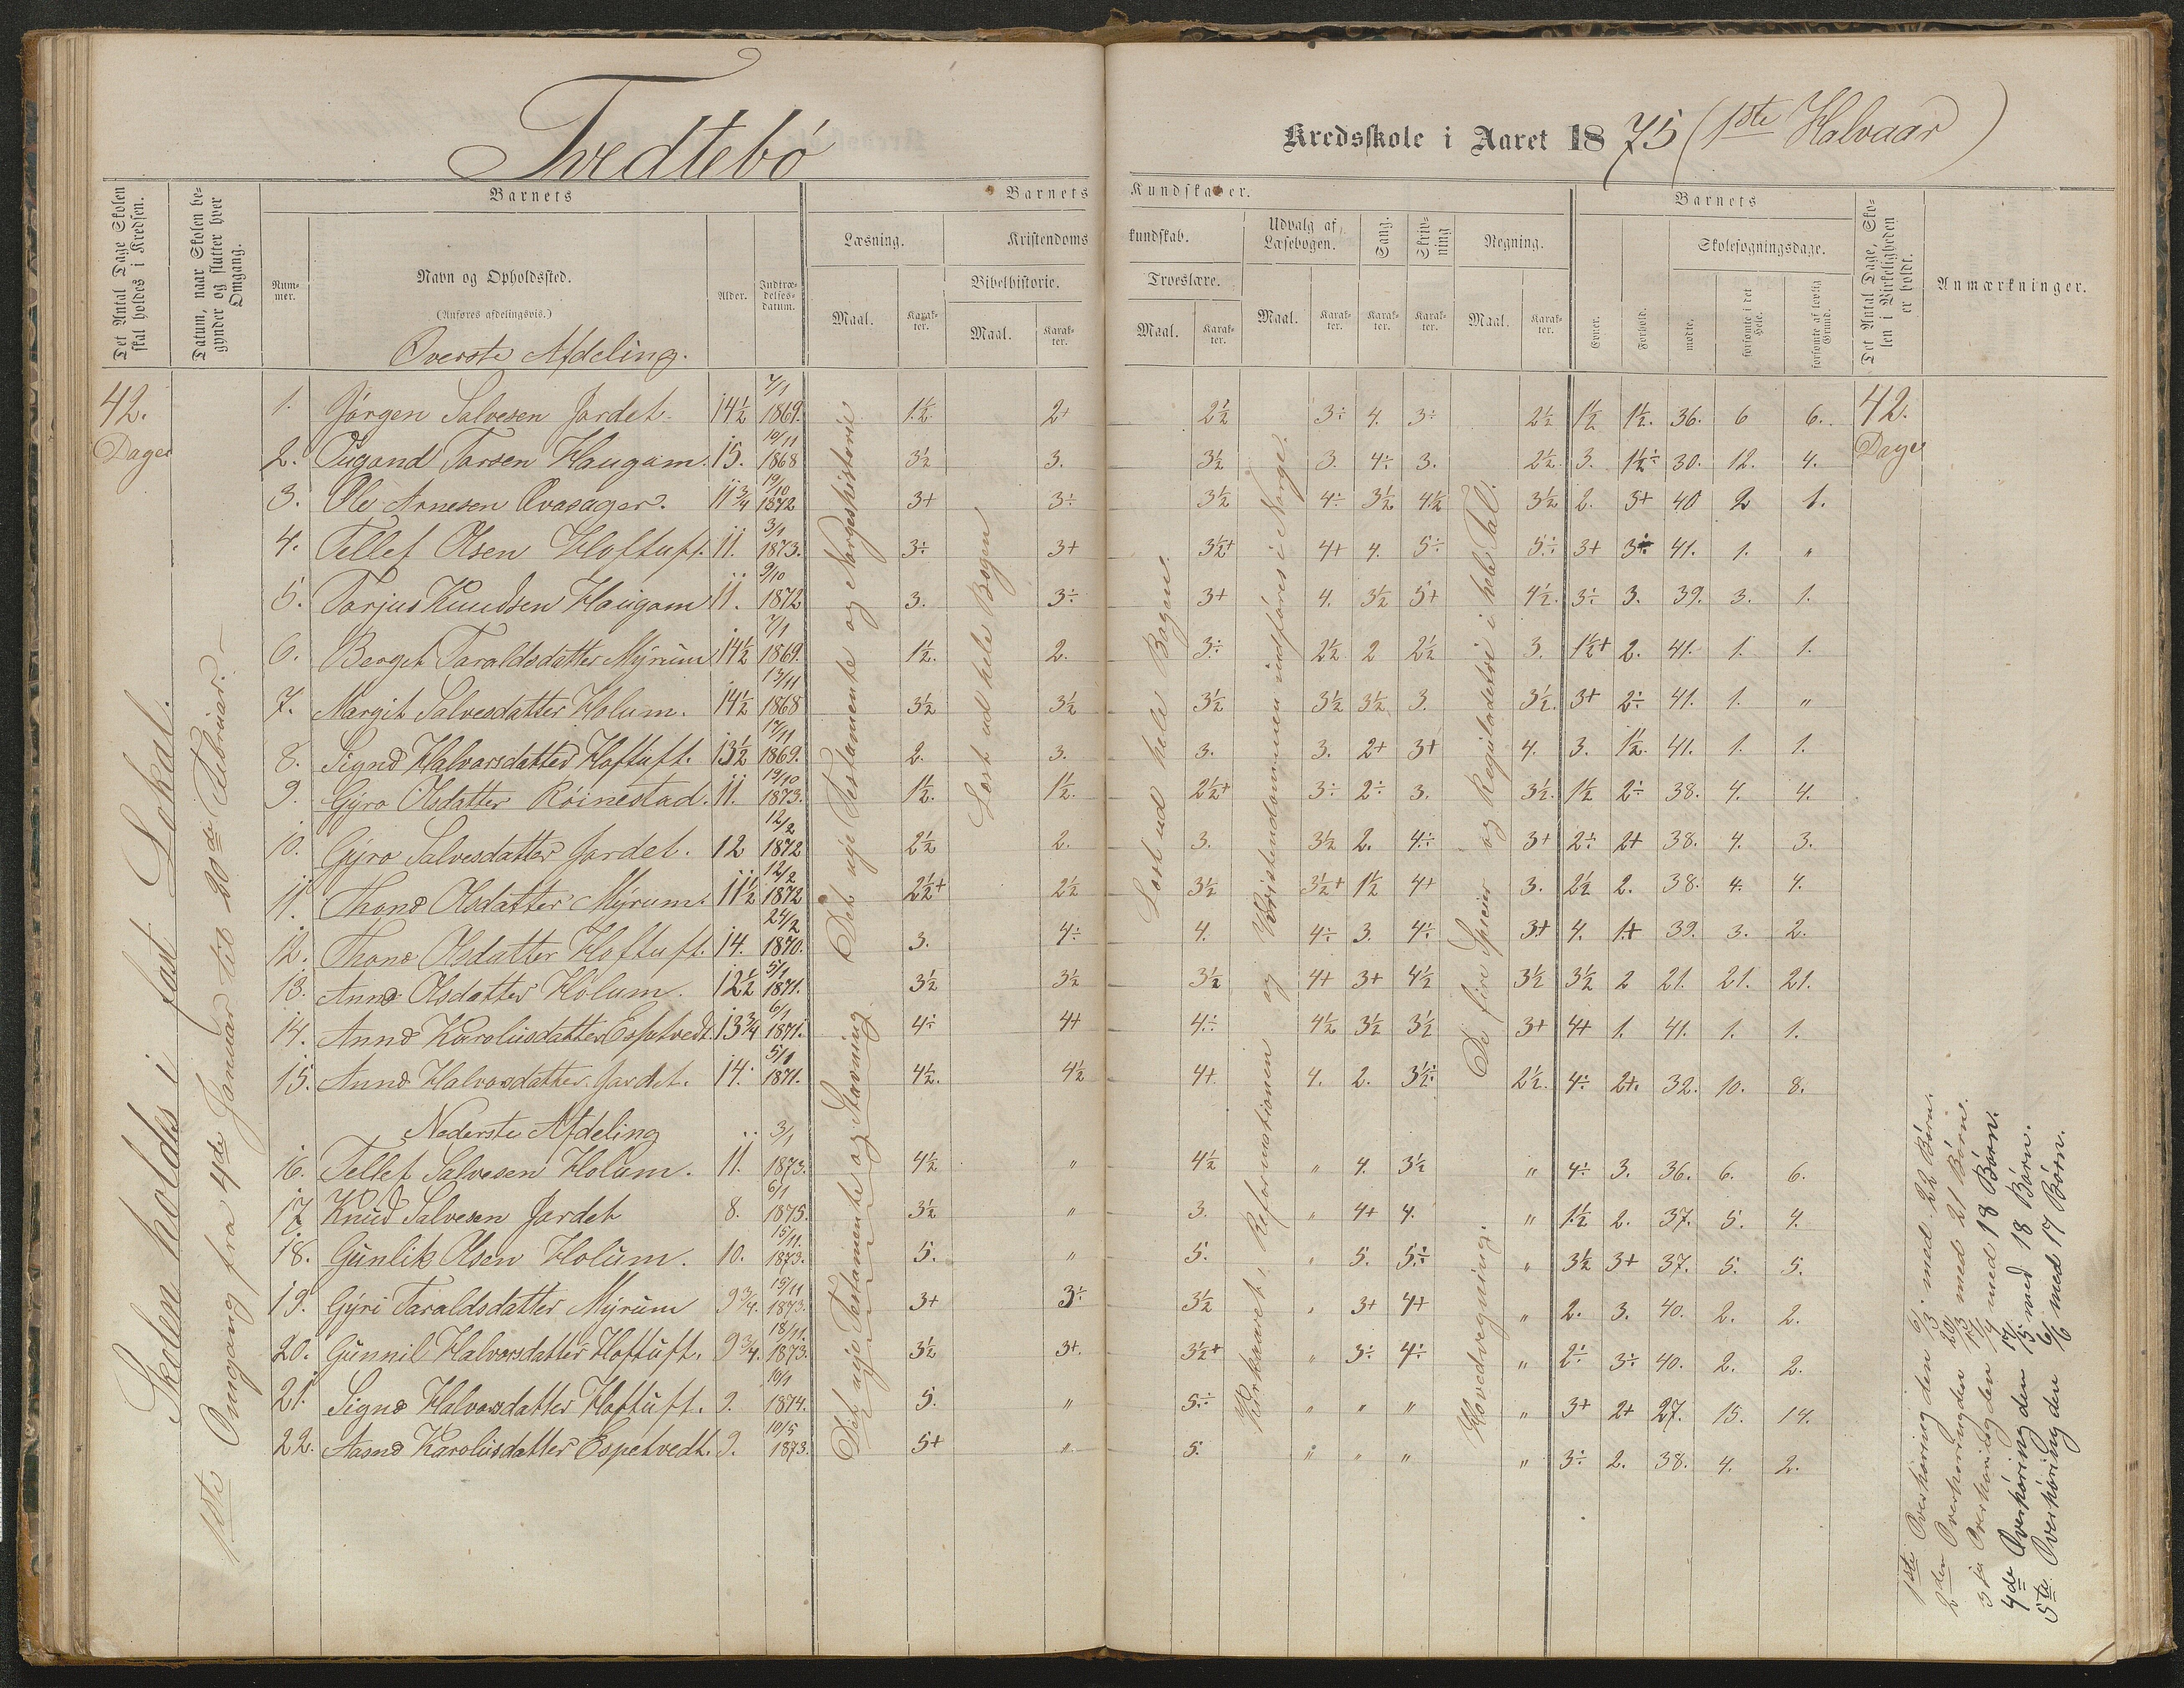 Tvedtebö Kredsskole i Aaret 1875 (1ste Halvaar)
Det Antal Dage Skolen skal holdes i Kredsen.
Datum, naar Skolen begynder og slutter hver Omgang.
Barnets
Nummer.
Navn og Opholdssted.
(Anføres afdelingsvis.)
Alder.
Indtrædelses-datum.
Barnets Kundskaber.
Læsning.
Maal.
Karakter.
Kristendomskundskab.
Bibelhistorie.
Maal.
Karakter.
Troeslære.
Maal.
Karakter.
Udvalg af Læsebogen.
Maal.
Karakter.
Sang.
Karakter.
Skrivning
Karakter.
Regning.
Maal.
Karakter.
Barnets
Evner.
Forhold.
Skolesøgningsdage.
mødte.
forsømte i det Hele.
forsømte af lovlig Grund.
Det Antal Dage, Skolen i Virkeligheden er holdt.
Anmærkninger.
Överste Afdeling.
42. Dage
Skolen holdes i fast Lokal.
1ste Omgang fra 4de Januar til 20de Februar.
1. Jörgen Salvesen Jardet. 14½ 7/1 1869. 1½. 2+ 2½ 3÷ 4. 3÷ 2½ 1½ 1½. 36. 6 6. 42. Dage
2. Augand Tarsen Haugam. 15. 10/11 1868 3½ 3. 3½ 3. 4÷ 3. 2½. 3. 1½÷ 30. 12. 4.
3. Ole Arnesen Qvasager. 11¾ 19/10 1872 3+ 3÷ 3½ 4÷ 3½ 4½ 3½ 2. 3+ 40 2 1.
4. Tellef Olsen Hoftuft. 11. 3/1 1873. 3÷ 3+ 3½+ 4+ 4. 5÷ 5÷ 3+ 3÷ 41. 1. "
5. Tarjus Knudsen Haugam 11. 9/10 1872 3. 3÷ 3+ 4. 3½ 5+ 4½. 3÷ 3. 39. 3. 1.
6. Berget Taraldsdatter Myrum 14½ 7/1 1869. 1½. 2. 3÷ 2½ 2 2½ 3. 1½+ 2. 41. 1. 1.
7. Margit Salvesdatter Holum. 14½ 13/11 1868 3½ 3½ 3½ 3½ 3½ 3. 3½. 3+ 2÷ 41. 1. "
8. Signe Halvorsdatter Hoftuft. 13½ 17/11 1869. 2. 3. 3. 3. 2+ 3+ 4. 3. 1½. 41. 1. 1.
9. Gyro Olsdatter Röinestad. 11. 19/10 1873. 1½. 1½. 2½+ 3÷ 2÷ 3. 3½. 1½ 2÷ 38. 4. 4.
10. Gyro Salvesdatter Jardet. 12 12/2 1872 2½ 2. 3. 3½ 2. 4÷ 3+ 2÷ 2+ 38. 4. 3.
11. Thone Olsdatter Myrum. 11½ 12/2 1872 2½+ 2½ 3½ 3½+ 1½ 4+ 3. 2½ 2. 38. 4. 4.
12. Thone Olsdatter Hoftuft. 14. 24/2 1870. 3. 4÷ 4. 4÷ 3. 4÷ 3+ 4. 1+ 39. 3. 2.
13. Anne Olsdatter Holum. 12½ 5/1 1871. 3½ 3½ 3½ 4+ 3+ 4½ 3½ 3½ 2 21. 21. 21.
14. Anne Karolusdatter Espetvedt. 13¾ 6/1 1871. 4÷ 4+ 4÷ 4½ 3½ 3½ 3+ 4+ 1. 41. 1. 1.
15. Anne Halvorsdatter Jardet. 14. 5/1 1871. 4½. 4½ 4+ 4. 2. 3½÷ 2½. 4÷ 2+. 32. 10. 8.
Nederste Afdeling
16. Tellef Salvesen Holum. 11. 3/1 1873. 4½ " 4½ " 4. 3½ " 4÷ 3. 36. 6. 6.
17 Knud Salvesen Jardet 8. 6/1 1875. 3½ " 3. " 4+ 4. " 1½ 2. 37. 5. 4.
18. Gunlik Olsen Holum. 10. 15/11. 1873. 5. " 5. " 5. 5÷ " 3½ 3+ 37. 5. 5.
19. Gyri Taraldsdatter Myrum 9¾. 15/11 1873. 3+ 3÷ 3½ " 3+ 4+ " 2. 3. 40. 2. 2.
20. Gunnil Halvorsdatter Hoftuft. 9¾. 18/11. 1873. 3½ 3+. 3½+ " 3÷ 4÷ " 2÷ 3÷ 40. 2. 2.
21. Signe Halvorsdatter Hoftuft. 9. 10/1 1874. 5. " 5÷ " " " " 3+ 2+ 27. 15. 14.
22. Aasne Karolusdatter Espetvedt. 9. 10/5 1873. 5+ " 5. " " " " 3÷ 2. 38. 4. 2.
Det nye Testamente og Norgeshistorie
Det nye Testamente og Stavning
Læst ud hele Bogen
Læst ud hele Bogen.
Kirkaaret, Reformationen og Kristendommen indföres i Norge.
De fire Speier og Reguladetri i hele Tal.
Hovedregning.
1ste Overhöring den 6/3. med 22 Börn.
2den Overhöring den 20/3 med 21 Börn.
3je Overhöring den med 18 Börn.
4de Overhöring den med 18 Börn.
5te Overhöring den 6/6 med 17 Börn.